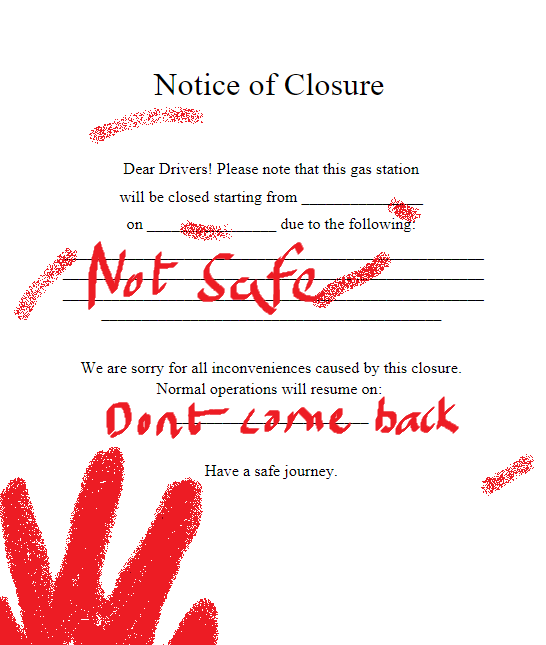 Notice of Closure
Dear Drivers! Please note that this gas station
will be closed starting from _______________
on ________________ due to the following:
Not Safe
We are sorry for all inconveniences caused by this closure.
Normal operations will resume on:
Dont come back
Have a safe journey.